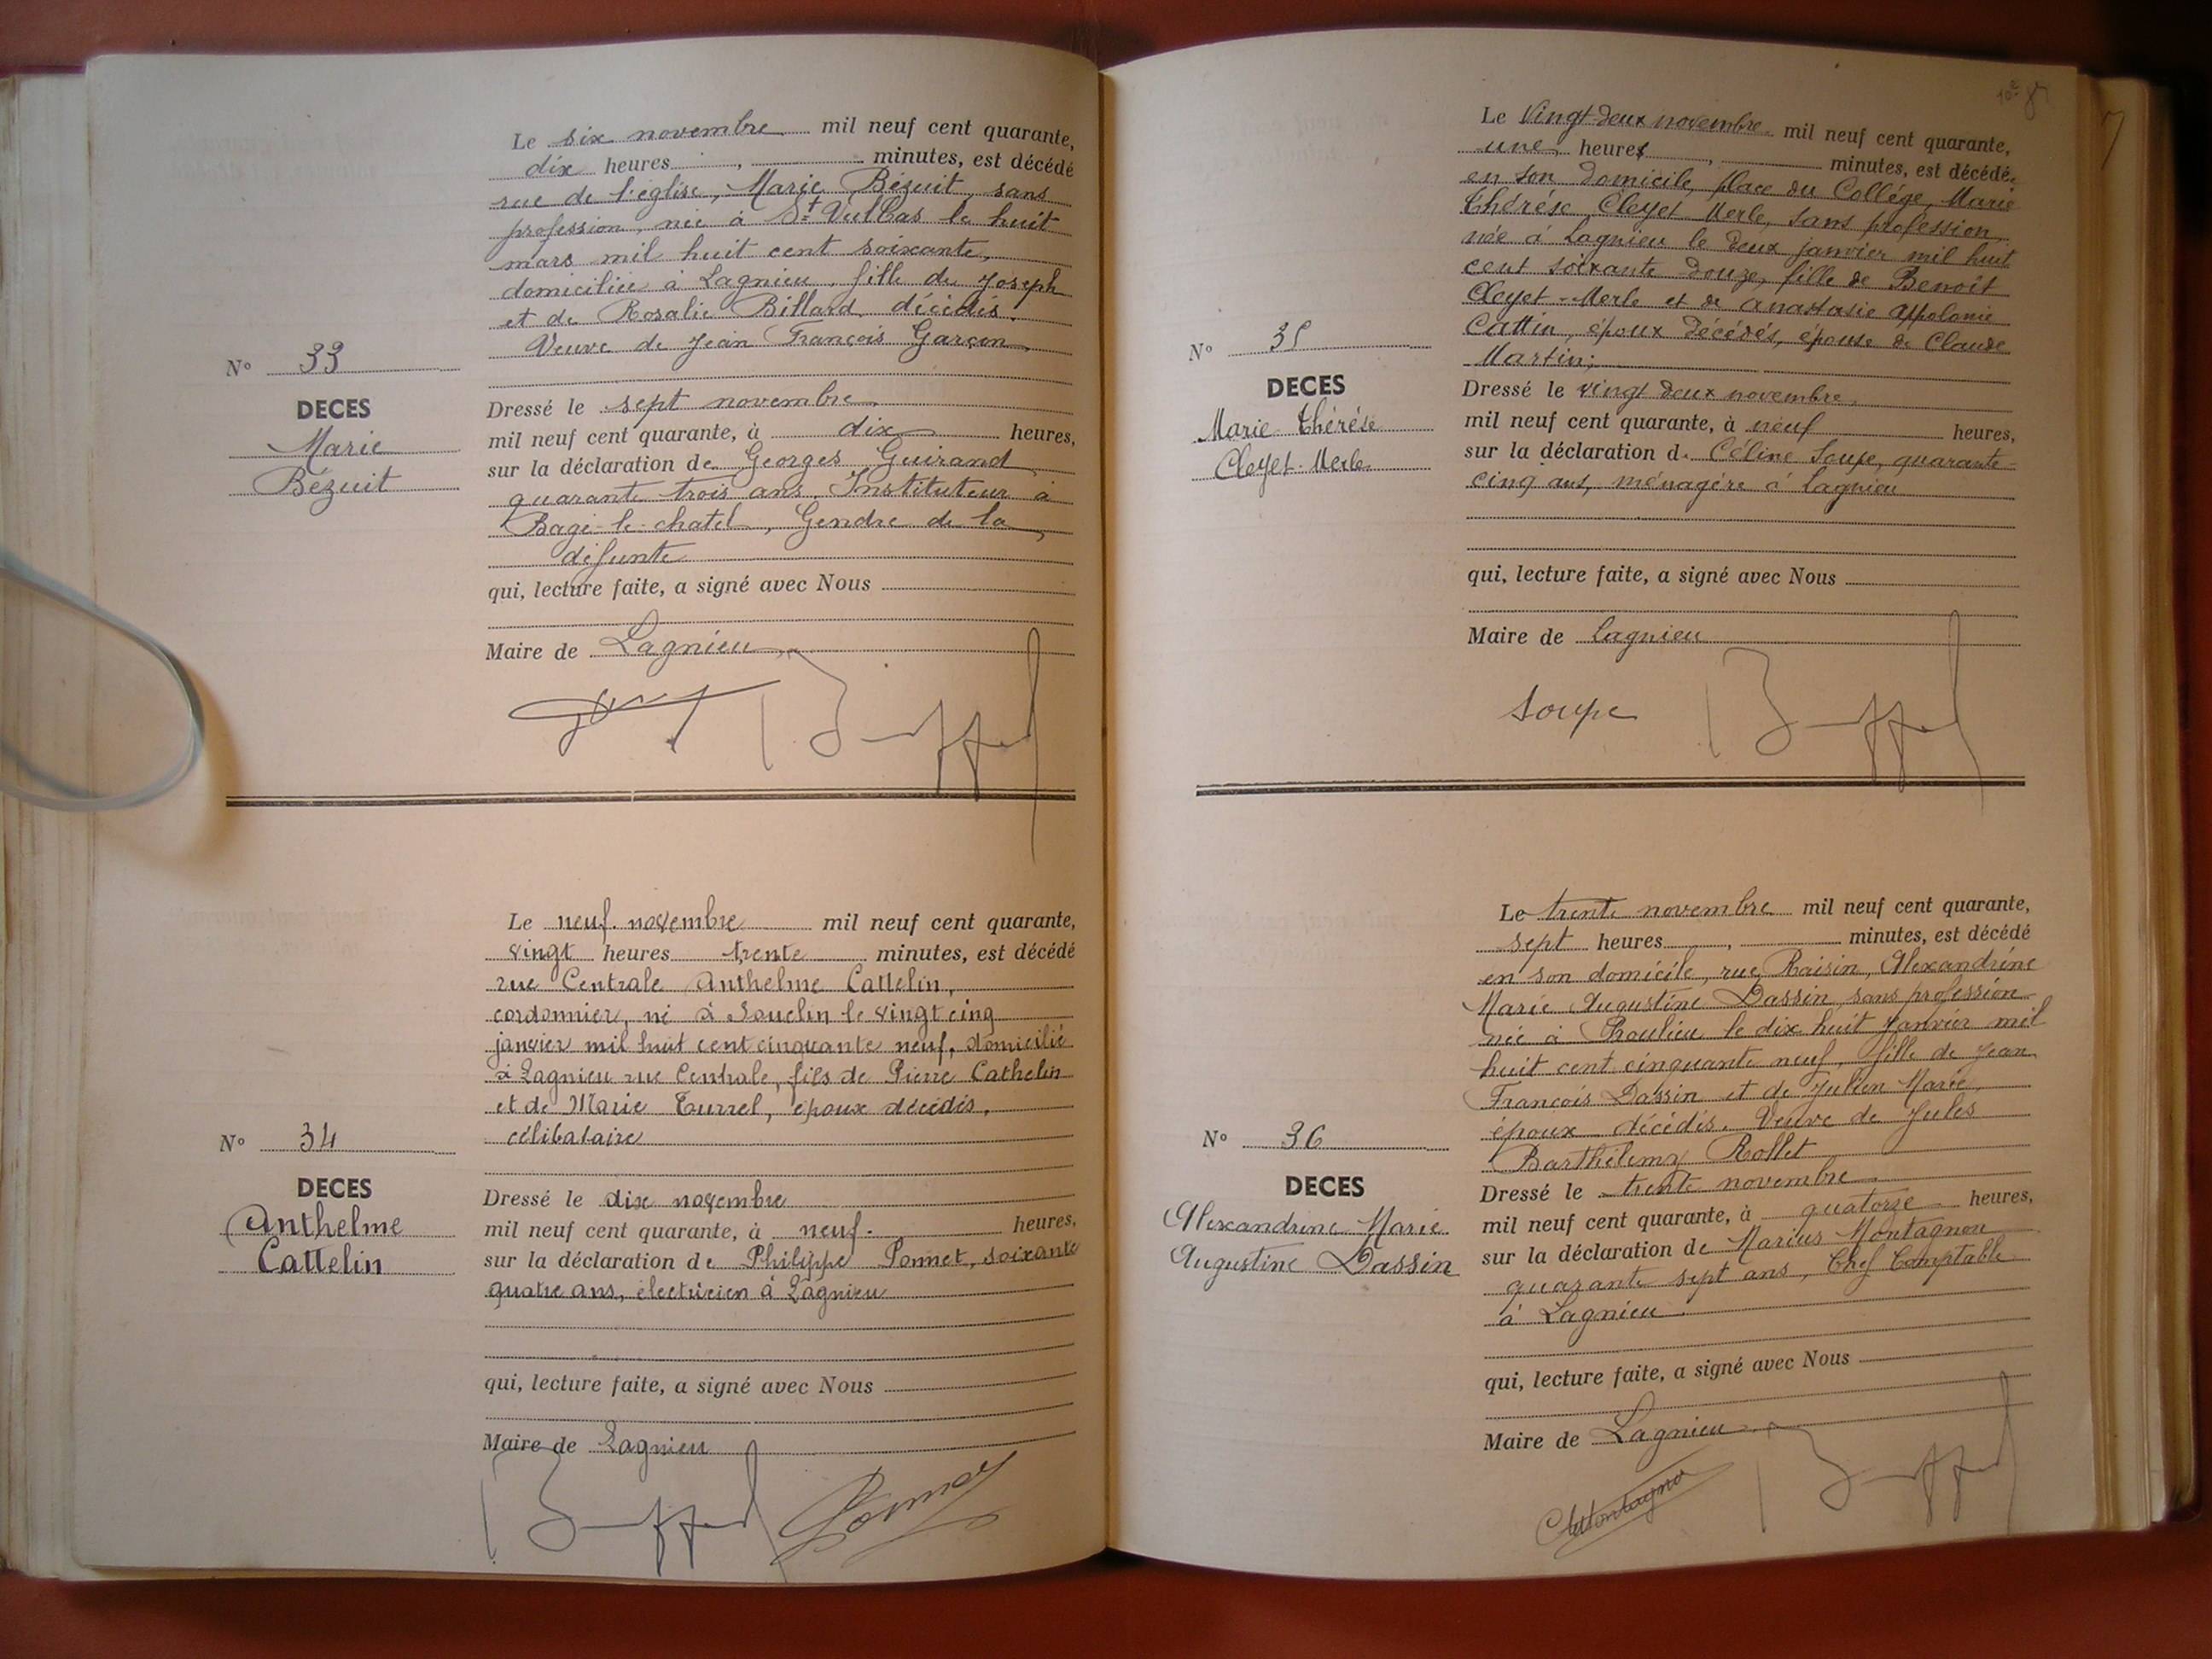 Le six novembre mil neuf cent quarante,
dix heures , minutes, est décédé
rue de l'église, Marie Bézuit, sans
profession, née à St Vulbas le huit
mars mil huit cent soixante,
domiciliée à Lagnieu, fille de Joseph
et de Rosalie Billard, décédés.
Veuve de Jean François Garçon
N° 33
DECES
Marie
Bézuit
Dressé le sept novembre
mil neuf cent quarante, à dix heures,
sur la déclaration de Georges Guirand
quarante trois ans, Instituteur à
Bagé-le-chatel, Gendre de la
défunte
qui, lecture faite, a signé avec Nous
Maire de Lagnieu
Le neuf novembre mil neuf cent quarante,
vingt heures trente minutes, est décédé
rue Centrale Anthelme Cattelin,
cordonnier, né à Souclin le vingt cinq
janvier mil huit cent cinquante neuf, domicilié
à Lagnieu rue Centrale, fils de Pierre Cathelin
et de Marie Turrel, époux décédés,
célibataire
N° 34
DECES
Anthelme
Cattelin
Dressé le dix novembre
mil neuf cent quarante, à neuf heures,
sur la déclaration de Philippe Pomet, soixante
quatre ans, électricien à Lagnieu
qui, lecture faite, a signé avec Nous
Maire de Lagnieu
Le Vingt-deux novembre mil neuf cent quarante,
une heures , minutes, est décédé
en son domicile, place du Collège, Marie
Thérèse Cleyet Merle, sans profession,
née à Lagnieu le deux janvier mil huit
cent soixante douze, fille de Benoît
Cleyet-Merle et de Anastasie Appolonie
Cattin, époux décédés, épouse de Claude
Martin;
N° 35
DECES
Marie Thérèse
Cleyet-Merle
Dressé le vingt deux novembre
mil neuf cent quarante, à neuf heures,
sur la déclaration de Céline Soupe, quarante-
cinq ans, ménagère à Lagnieu
qui, lecture faite, a signé avec Nous
Maire de Lagnieu
Soupe
Le trente novembre mil neuf cent quarante,
sept heures , minutes, est décédé
en son domicile, rue Raisin, Alexandrine
Marie Augustine Dassin, sans profession
née à Proulieu le dix huit Janvier mil
huit cent cinquante neuf, fille de Jean
François Dassin et de Julien Marie
époux décédés. Veuve de Jules
Barthélemy Rollet
N° 36
DECES
Alexandrine Marie
Augustine Dassin
Dressé le trente novembre
mil neuf cent quarante, à quatorze heures,
sur la déclaration de Marius Montagnon
quarante sept ans, Chef Comptable
à Lagnieu
qui, lecture faite, a signé avec Nous
Maire de Lagnieu